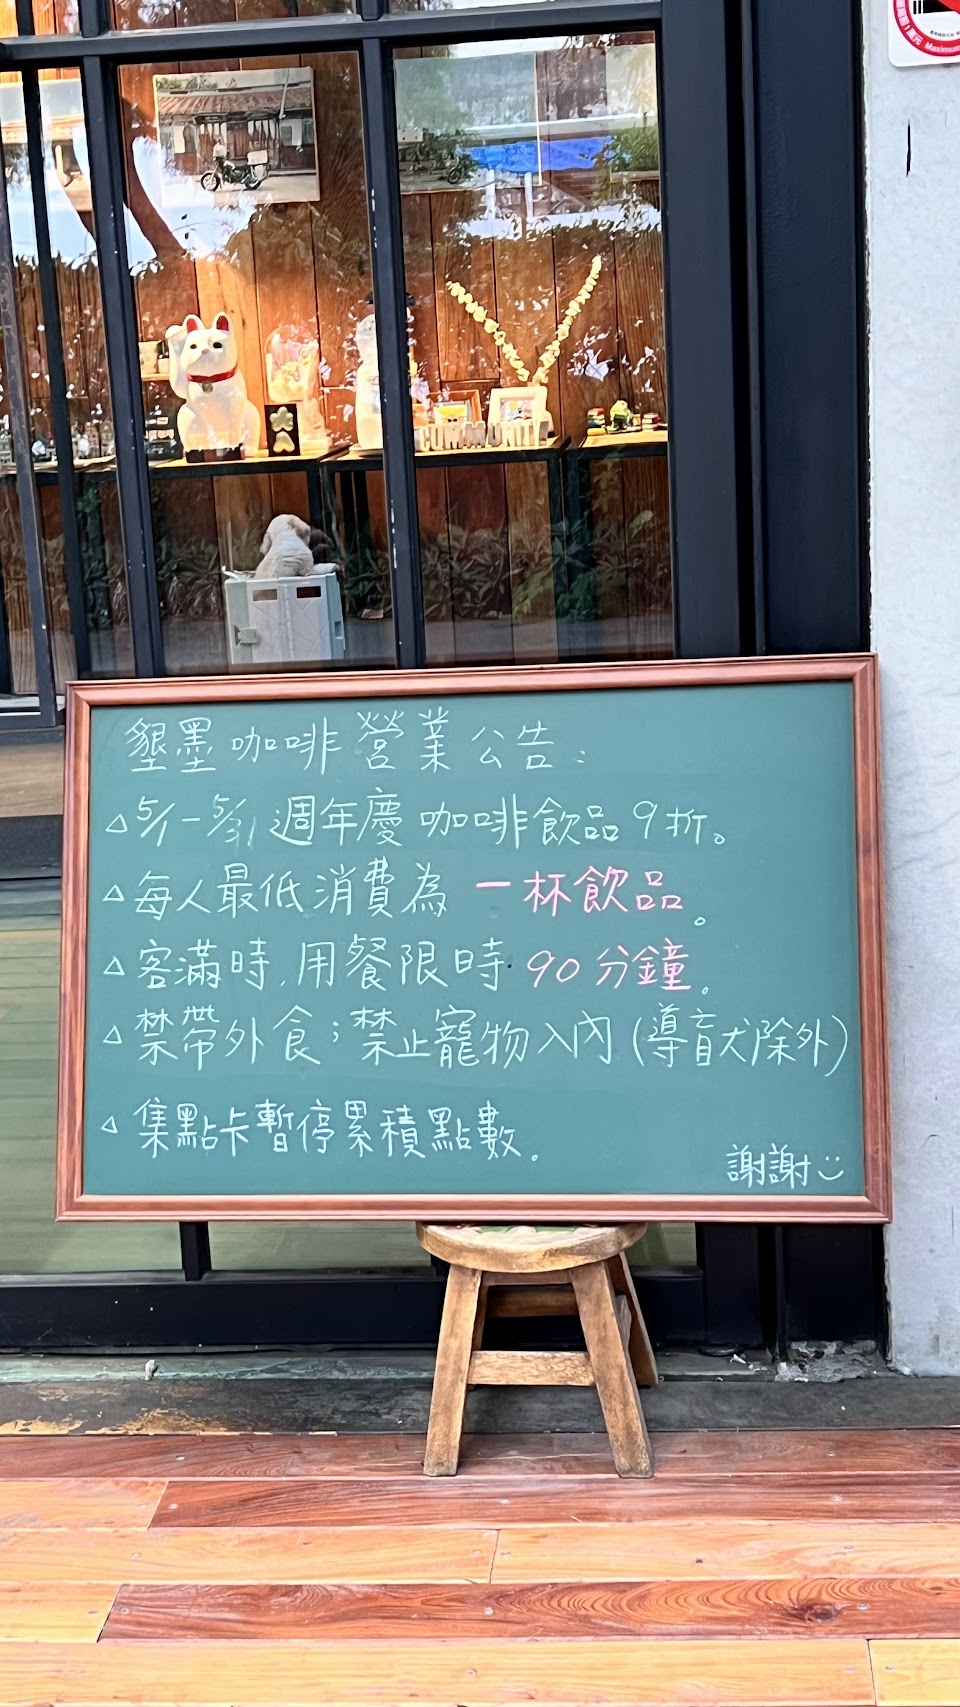 Maximum
COMMUNITY
墾墨咖啡營業公告:
△5/1-5/31週年慶咖啡飲品9折。
△每人最低消費為 一杯飲品。
△客滿時,用餐限時 90分鐘。
△禁帶外食;禁止寵物入內(導盲犬除外)
△集點卡暫停累積點數。
謝謝